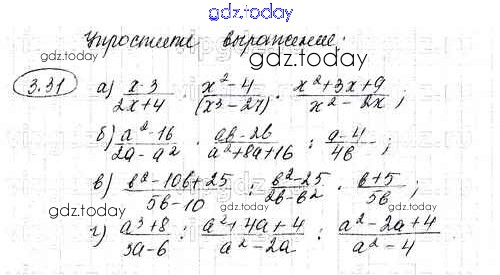 gdz.today
Упростите выражение:
gdz.today gdz.today
3.31 а) x-3/2x+4 · x²-4/(x³-27) · x²+3x+9/x²-2x ;
gdz.today
б) a²-16/2a-a² · ab-2b/a²+8a+16 : a-4/4b ;
в) b²-10b+25/5b-10 : b²-25/2b-b² · b+5/5b ;
gdz.today gdz.today
г) a³+8/3a-6 : a²+4a+4/a²-2a : a²-2a+4/a²-4
gdz.today